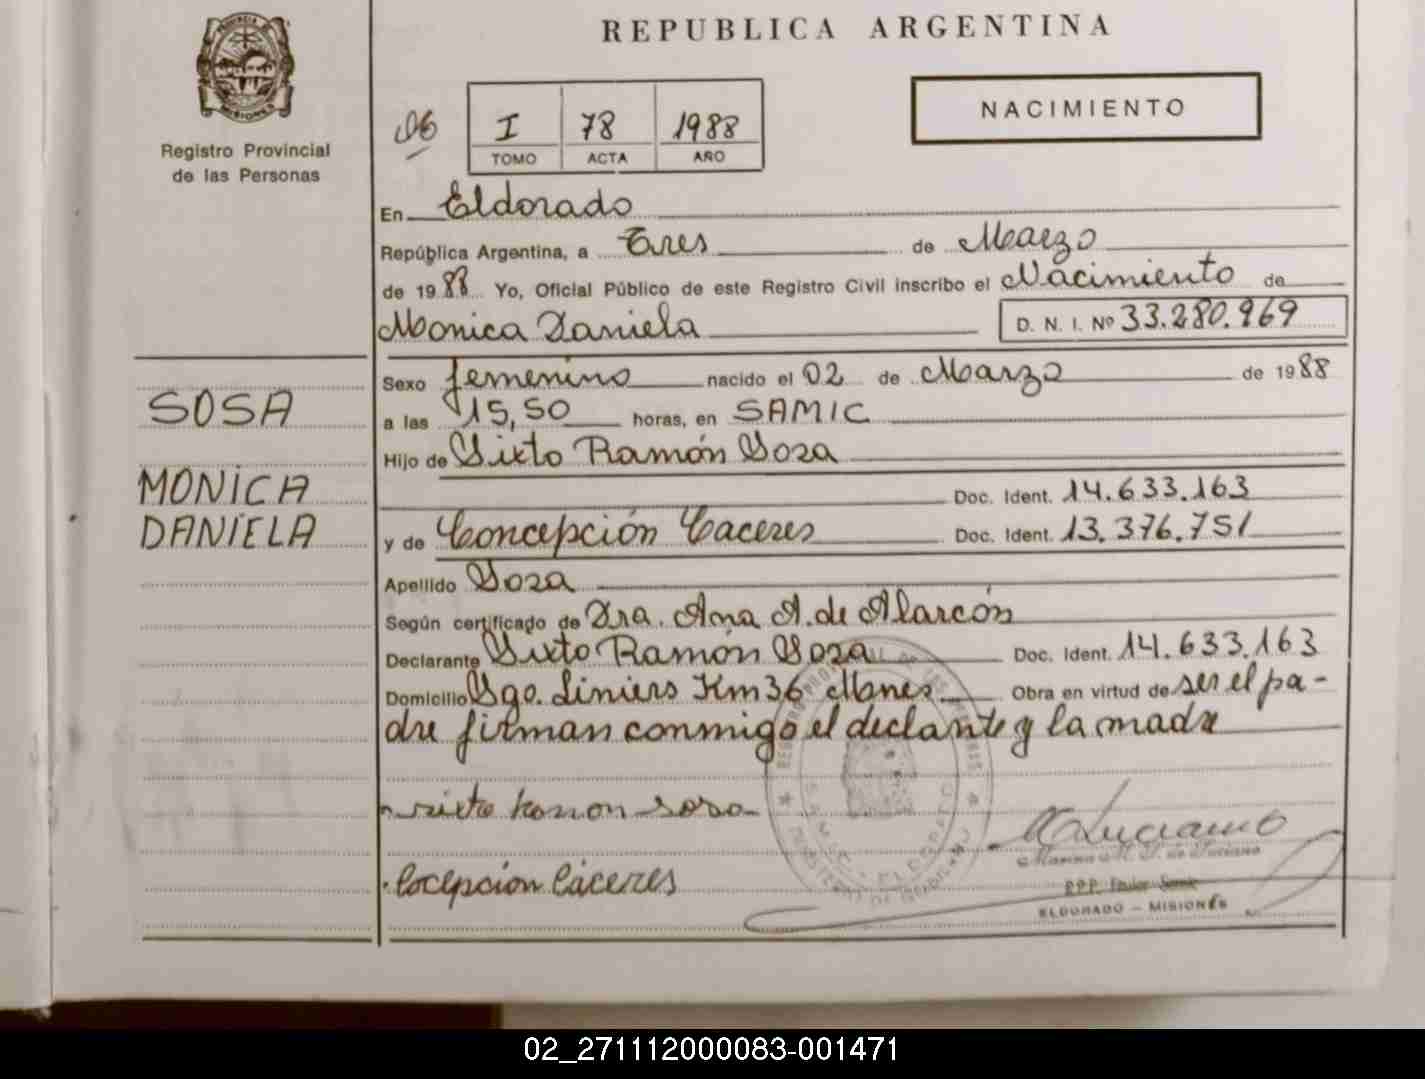 REPUBLICA ARGENTINA
PROVINCIA DE
MISIONES
Registro Provincial
de las Personas
06
I 78 1988
TOMO ACTA AÑO
NACIMIENTO
En Eldorado
República Argentina, a Tres de Marzo
de 1988 Yo, Oficial Público de este Registro Civil inscribo el Nacimiento de
Monica Daniela D. N. I. Nº 33.280.969
Sexo femenino nacido el 02 de Marzo de 1988
SOSA
a las 15,50 horas, en SAMIC
Hijo de Sixto Ramón Sosa
MONICA
Doc. Ident. 14.633.163
DANIELA
y de Concepción Caceres Doc. Ident. 13.376.751
Apellido Sosa
Según certificado de Dra. Ana A. de Alarcón
Declarante Sixto Ramón Sosa Doc. Ident. 14.633.163
Domicilio Sgo. Liniers Km 36 Mnes Obra en virtud de ser el pa-
dre firman conmigo el declante y la madre
sixto ramon sosa
Cocepcion Cáceres
Luciano
Marina M. de Luciano
ELDORADO - MISIONES
02_271112000083-001471